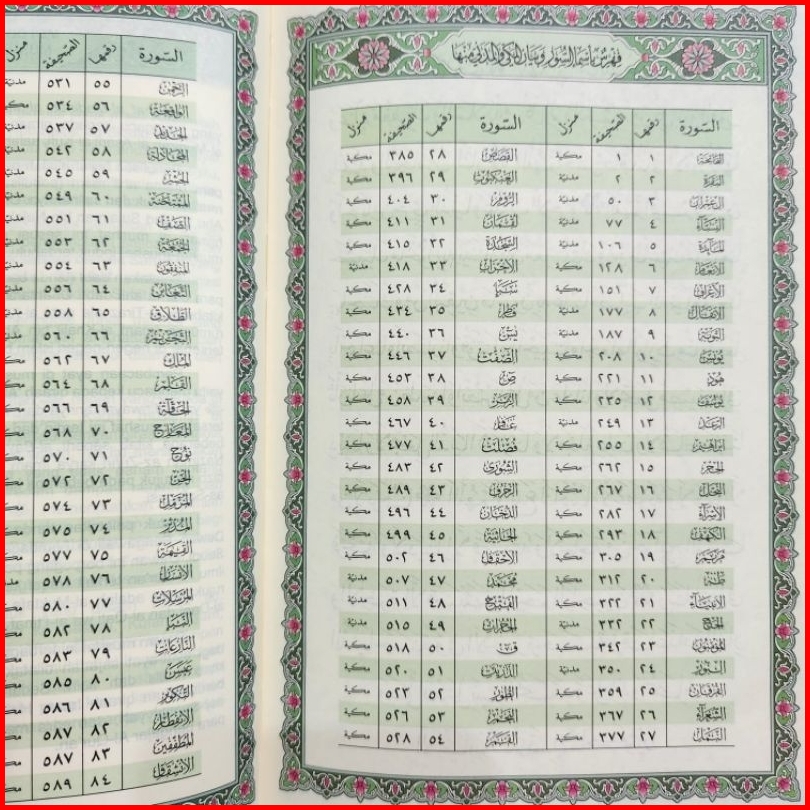 فهرس بأسماء السور وبيان المكي والمدني منها
السورة رقمها الصحيفة منزل السورة رقمها الصحيفة منزل
الفاتحة ١ ١ مكية القصص ٢٨ ٣٨٥ مكية
البقرة ٢ ٢ مدنية العنكبوت ٢٩ ٣٩٦ مكية
آل عمران ٣ ٥٠ مدنية الروم ٣٠ ٤٠٤ مكية
النساء ٤ ٧٧ مدنية لقمان ٣١ ٤١١ مكية
المائدة ٥ ١٠٦ مدنية السجدة ٣٢ ٤١٥ مكية
الأنعام ٦ ١٢٨ مكية الأحزاب ٣٣ ٤١٨ مدنية
الأعراف ٧ ١٥١ مكية سبإ ٣٤ ٤٢٨ مكية
الأنفال ٨ ١٧٧ مدنية فاطر ٣٥ ٤٣٤ مكية
التوبة ٩ ١٨٧ مدنية يس ٣٦ ٤٤٠ مكية
يونس ١٠ ٢٠٨ مكية الصفت ٣٧ ٤٤٦ مكية
هود ١١ ٢٢١ مكية ص ٣٨ ٤٥٣ مكية
يوسف ١٢ ٢٣٥ مكية الزمر ٣٩ ٤٥٨ مكية
الرعد ١٣ ٢٤٩ مدنية غافر ٤٠ ٤٦٧ مكية
ابراهيم ١٤ ٢٥٥ مكية فصلت ٤١ ٤٧٧ مكية
الحجر ١٥ ٢٦٢ مكية الشورى ٤٢ ٤٨٣ مكية
النحل ١٦ ٢٦٧ مكية الزخرف ٤٣ ٤٨٩ مكية
الإسراء ١٧ ٢٨٢ مكية الدخان ٤٤ ٤٩٦ مكية
الكهف ١٨ ٢٩٣ مكية الجاثية ٤٥ ٤٩٩ مكية
مريم ١٩ ٣٠٥ مكية الأحقاف ٤٦ ٥٠٢ مكية
طه ٢٠ ٣١٢ مكية محمد ٤٧ ٥٠٧ مدنية
الأنبياء ٢١ ٣٢٢ مكية الفتح ٤٨ ٥١١ مدنية
الحج ٢٢ ٣٣٢ مدنية الحجرات ٤٩ ٥١٥ مدنية
المؤمنون ٢٣ ٣٤٢ مكية ق ٥٠ ٥١٨ مكية
النور ٢٤ ٣٥٠ مدنية الذريت ٥١ ٥٢٠ مكية
الفرقان ٢٥ ٣٥٩ مكية الطور ٥٢ ٥٢٣ مكية
الشعراء ٢٦ ٣٦٧ مكية النجم ٥٣ ٥٢٦ مكية
النمل ٢٧ ٣٧٧ مكية القمر ٥٤ ٥٢٨ مكية
السورة رقمها الصحيفة منزل
الرحمن ٥٥ ٥٣١
الواقعة ٥٦ ٥٣٤
الحديد ٥٧ ٥٣٧
المجادلة ٥٨ ٥٤٢
الحشر ٥٩ ٥٤٥
الممتحنة ٦٠ ٥٤٩
الصف ٦١ ٥٥١
الجمعة ٦٢ ٥٥٣
المنفقون ٦٣ ٥٥٤
التغابن ٦٤ ٥٥٦
الطلاق ٦٥ ٥٥٨
التحريم ٦٦ ٥٦٠
الملك ٦٧ ٥٦٢
القلم ٦٨ ٥٦٤
الحاقة ٦٩ ٥٦٦
المعارج ٧٠ ٥٦٨
نوح ٧١ ٥٧٠
الجن ٧٢ ٥٧٢
المزمل ٧٣ ٥٧٤
المدثر ٧٤ ٥٧٥
القيمة ٧٥ ٥٧٧
الإنسان ٧٦ ٥٧٨
المرسلات ٧٧ ٥٨٠
النبإ ٧٨ ٥٨٢
النازعات ٧٩ ٥٨٣
عبس ٨٠ ٥٨٥
التكوير ٨١ ٥٨٦
الانفطار ٨٢ ٥٨٧
المطففين ٨٣ ٥٨٧
الانشقاق ٨٤ ٥٨٩